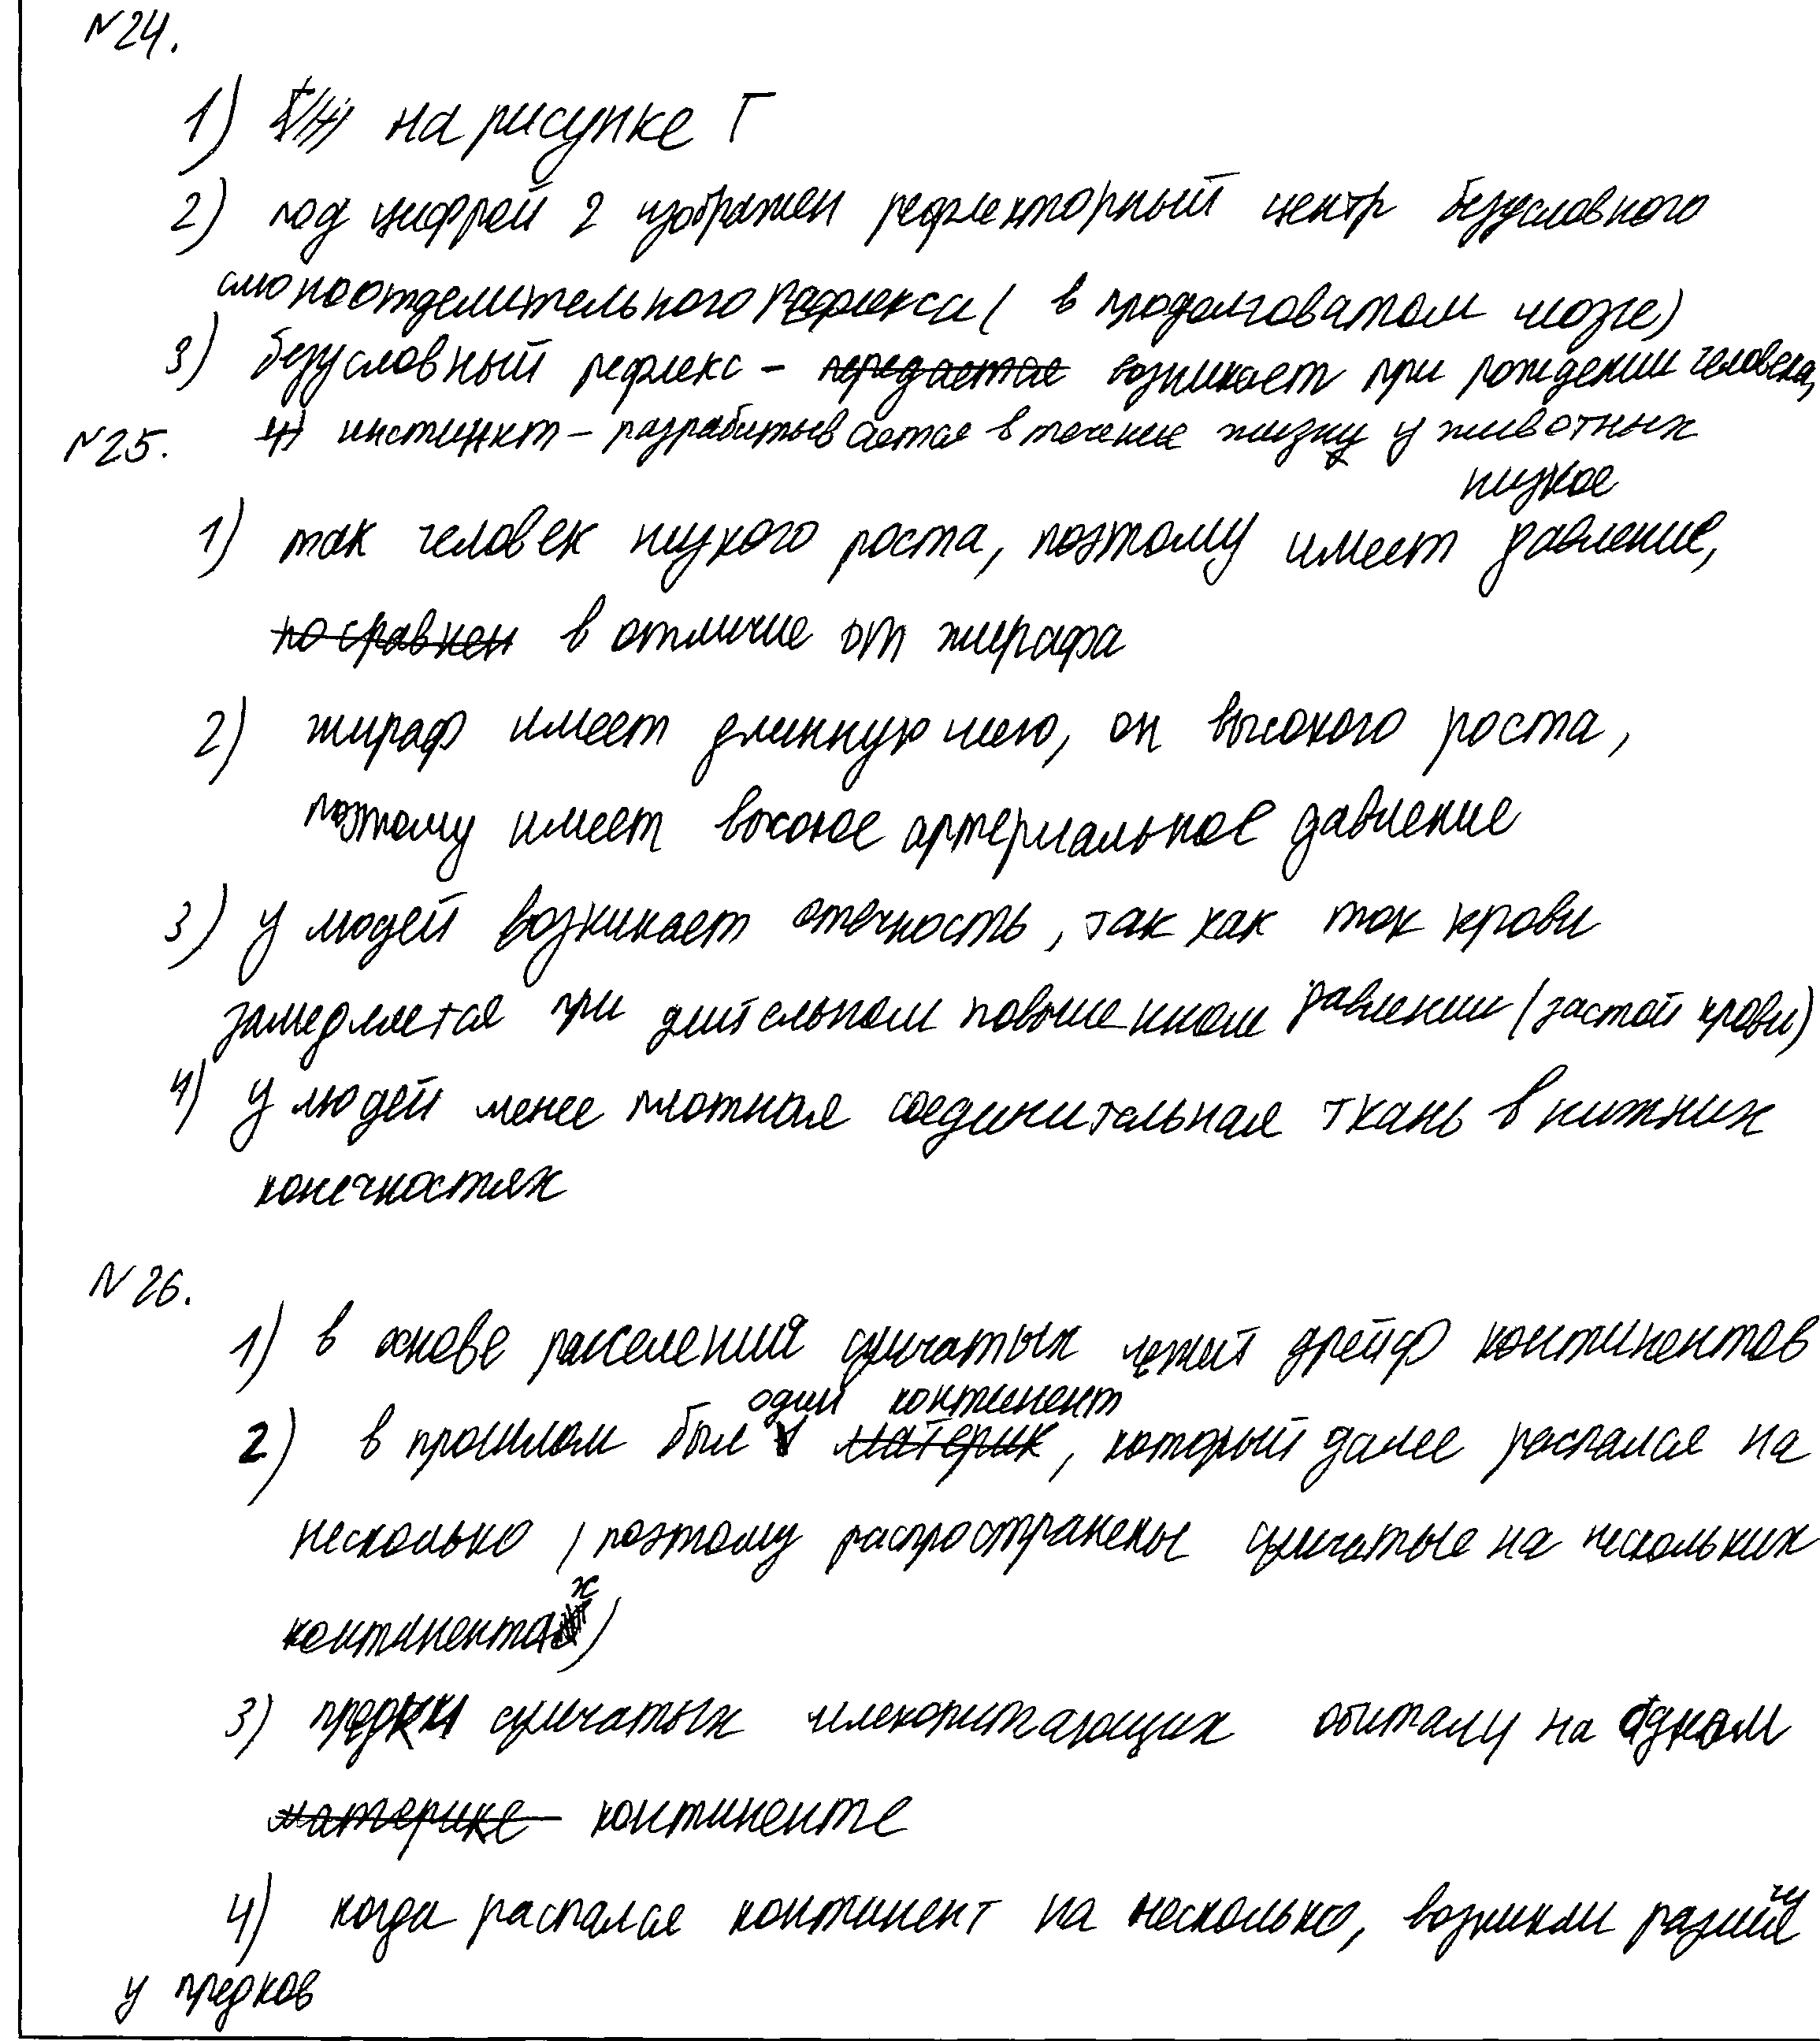 №24.
1) на рисунке Г
2) под цифрой 2 изображен рефлекторный центр безусловного
слюноотделительного рефлекса ( в продолговатом мозге)
3) безусловный рефлекс – передается возникает при рождении человека,
4) инстинкт – разрабатывается в течение жизни у животных
№25.
низкое
1) так человек низкого роста, поэтому имеет давление,
по сравнен в отличие от жирафа
2) жираф имеет длинную шею, он высокого роста,
поэтому имеет высокое артериальное давление
3) у людей возникает отечность, так как ток крови
замедляется при длительном повышенном давлении (застой крови)
4) у людей менее плотная соединительная ткань в нижних
конечностях
№26.
1) в основе расселения сумчатых лежит дрейф континентов
один континент
2) в прошлом был материк, который далее распался на
несколько (поэтому распространены сумчатые на нескольких
континентах)
3) предки сумчатых млекопитающих обитали на одном
материке континенте
4) когда распался континент на несколько, возникли
у предков